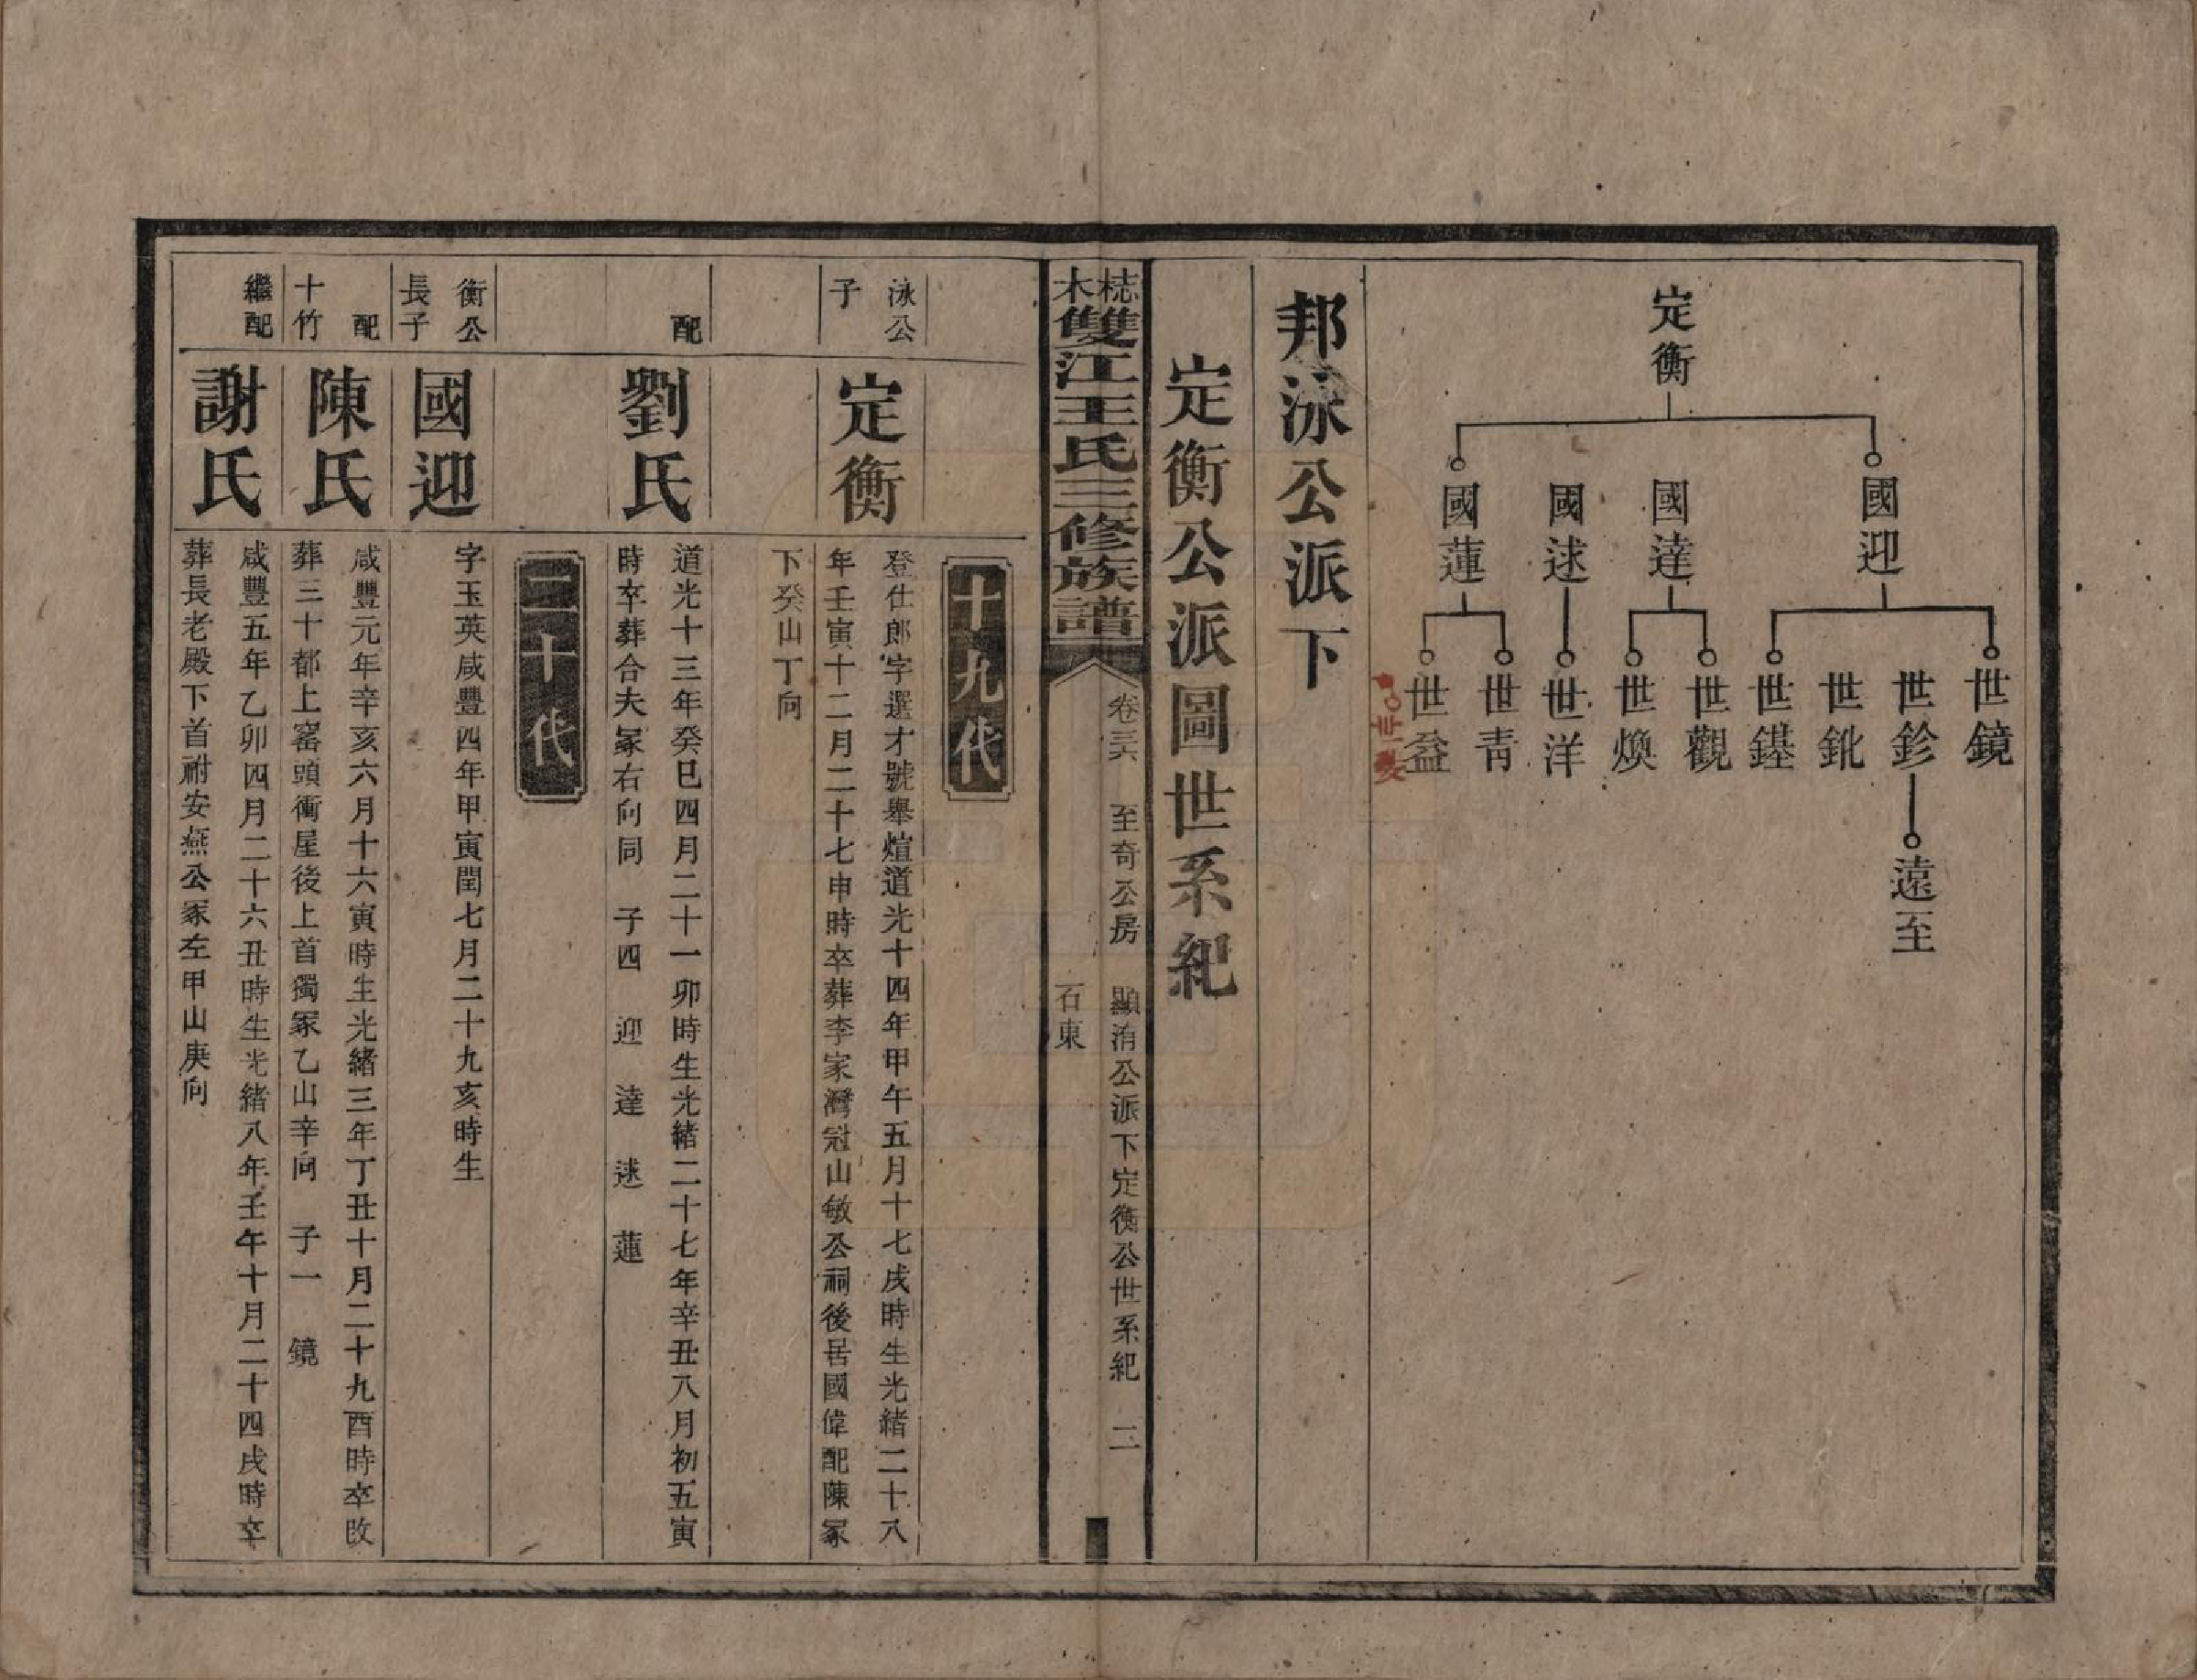 定衡
國迎
國達
國逑
國蓮
世鏡
世鉁
世鈋
世鐽
世觀
世煥
世洋
世青
世益
遠至
邦泳公派下
定衡公派圖世系紀
梽木雙江王氏三修族譜
卷三六 至奇公房 顯洧公派下定衡公世系紀 二
石東
十九代
泳公子
定衡
登仕郎字選才號舉煊道光十四年甲午五月十七戌時生光緒二十八
年壬寅十二月二十七申時卒葬李家灣冠山敏公祠後居國偉配陳冢
下癸山丁向
配
劉氏
道光十三年癸巳四月二十一卯時生光緒二十七年辛丑八月初五寅
時卒葬合夫冢右向同 子四 迎 達 逑 蓮
二十代
衡公長子
國迎
字玉英咸豐四年甲寅閏七月二十九亥時生
配十竹
陳氏
咸豐元年辛亥六月十六寅時生光緒三年丁丑十月二十九酉時卒改
葬三十都上窰頭衝屋後上首獨冢乙山辛向 子一 鏡
繼配
謝氏
咸豐五年乙卯四月二十六丑時生光緒八年壬午十月二十四戌時卒
葬長老殿下首祔安燕公冢左甲山庚向